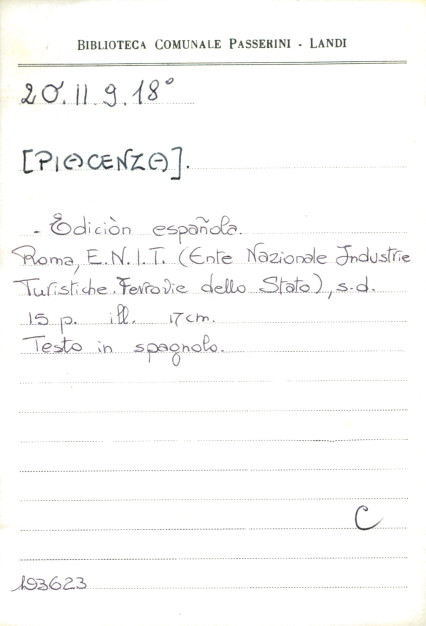 BIBLIOTECA COMUNALE PASSERINI - LANDI
20.II.9.18°
[PIACENZA].
- Ediciòn española.
Roma, E.N.I.T. (Ente Nazionale Industrie
Turistiche Ferrovie dello Stato), s.d.
15 p. ill. 17cm.
Testo in spagnolo.
C
193623